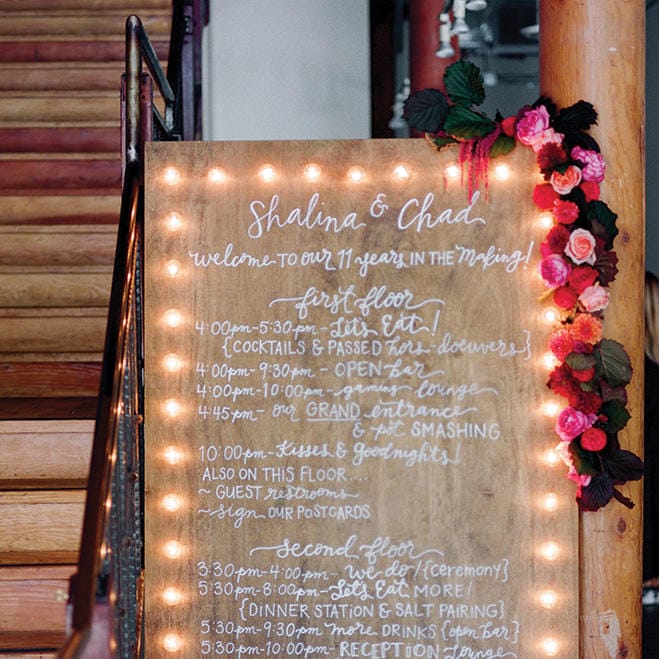 Shalina & Chad
welcome TO our 11 years IN THE Making!
first floor
4:00pm-5:30pm- Let's Eat!
{COCKTAILS & PASSED hors-doeuvers}
4:00pm- 9:30pm - OPEN bar
4:00pm-10:00pm- gaming lounge
4:45pm- our GRAND entrance
& pot SMASHING
10:00pm- Kisses & Goodnights!
ALSO ON THIS FLOOR....
~ GUEST restrooms
~ sign OUR POSTCARDS
second floor
3:30pm-4:00pm - we do! {ceremony}
5:30pm-8:00pm- Let's Eat MORE!
{DINNER STATION & SALT PAIRING}
5:30pm-9:30pm more DRINKS {open bar}
5:30pm-10:00pm- RECEPTION Lounge